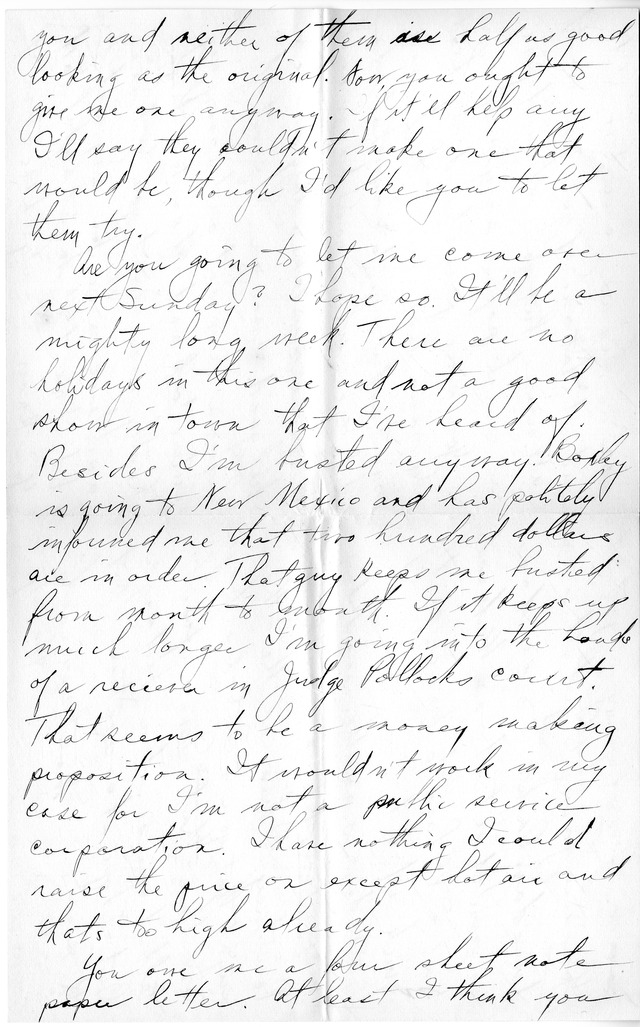 you and neither of them is half as good
looking as the original. Now you ought to
give me one anyway. If it'll help any
I'll say they couldn't make one that
would be, though I'd like you to let
them try.
Are you going to let me come over
next Sunday? I hope so. It'll be a
mighty long week. There are no
holidays in this one and not a good
show in town that I've heard of.
Besides I'm busted anyway. Boxley
is going to New Mexico and has politely
informed me that two hundred dollars
are in order. That guy keeps me busted
from month to month. If it keeps up
much longer I'm going into the hands
of a reciever in Judge Pollocks court.
That seems to be a money making
proposition. It wouldn't work in my
case for I'm not a public service
corporation. I have nothing I could
raise the price on except hot air and
thats to high already.
You owe me a four sheet note
paper letter. At least I think you